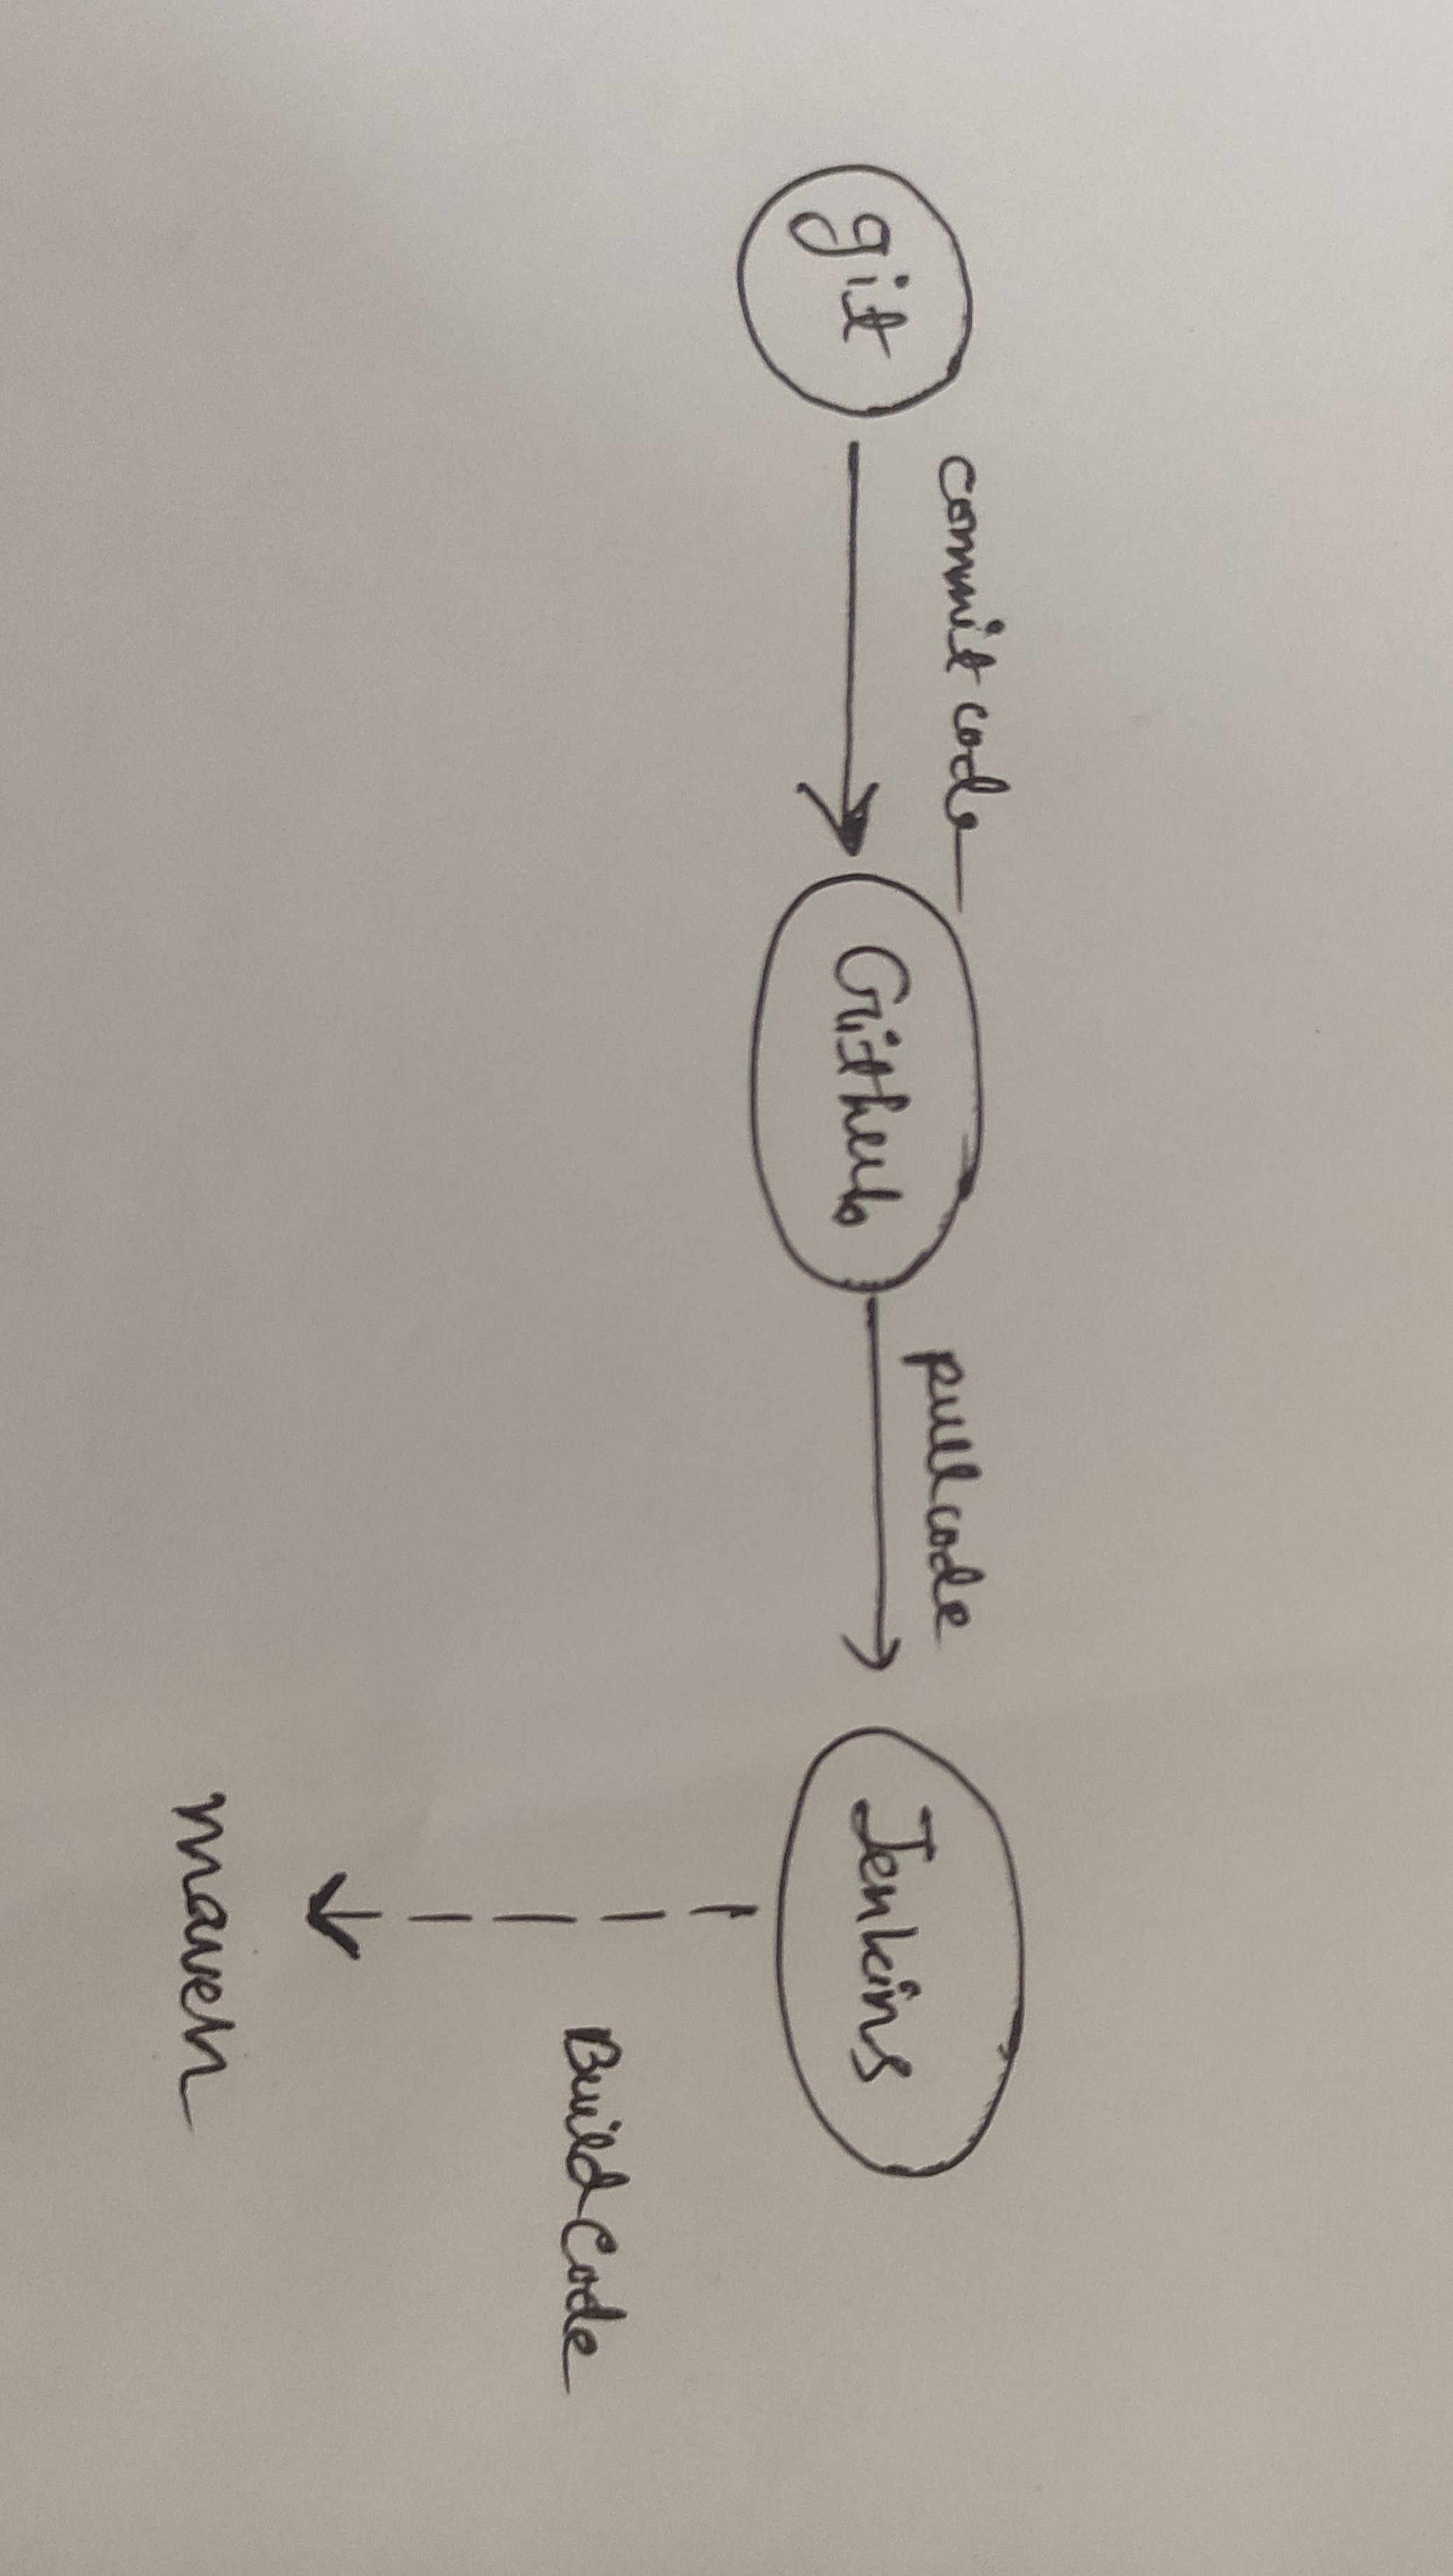 git
commit code
Github
pull code
Jenkins
Build Code
maven